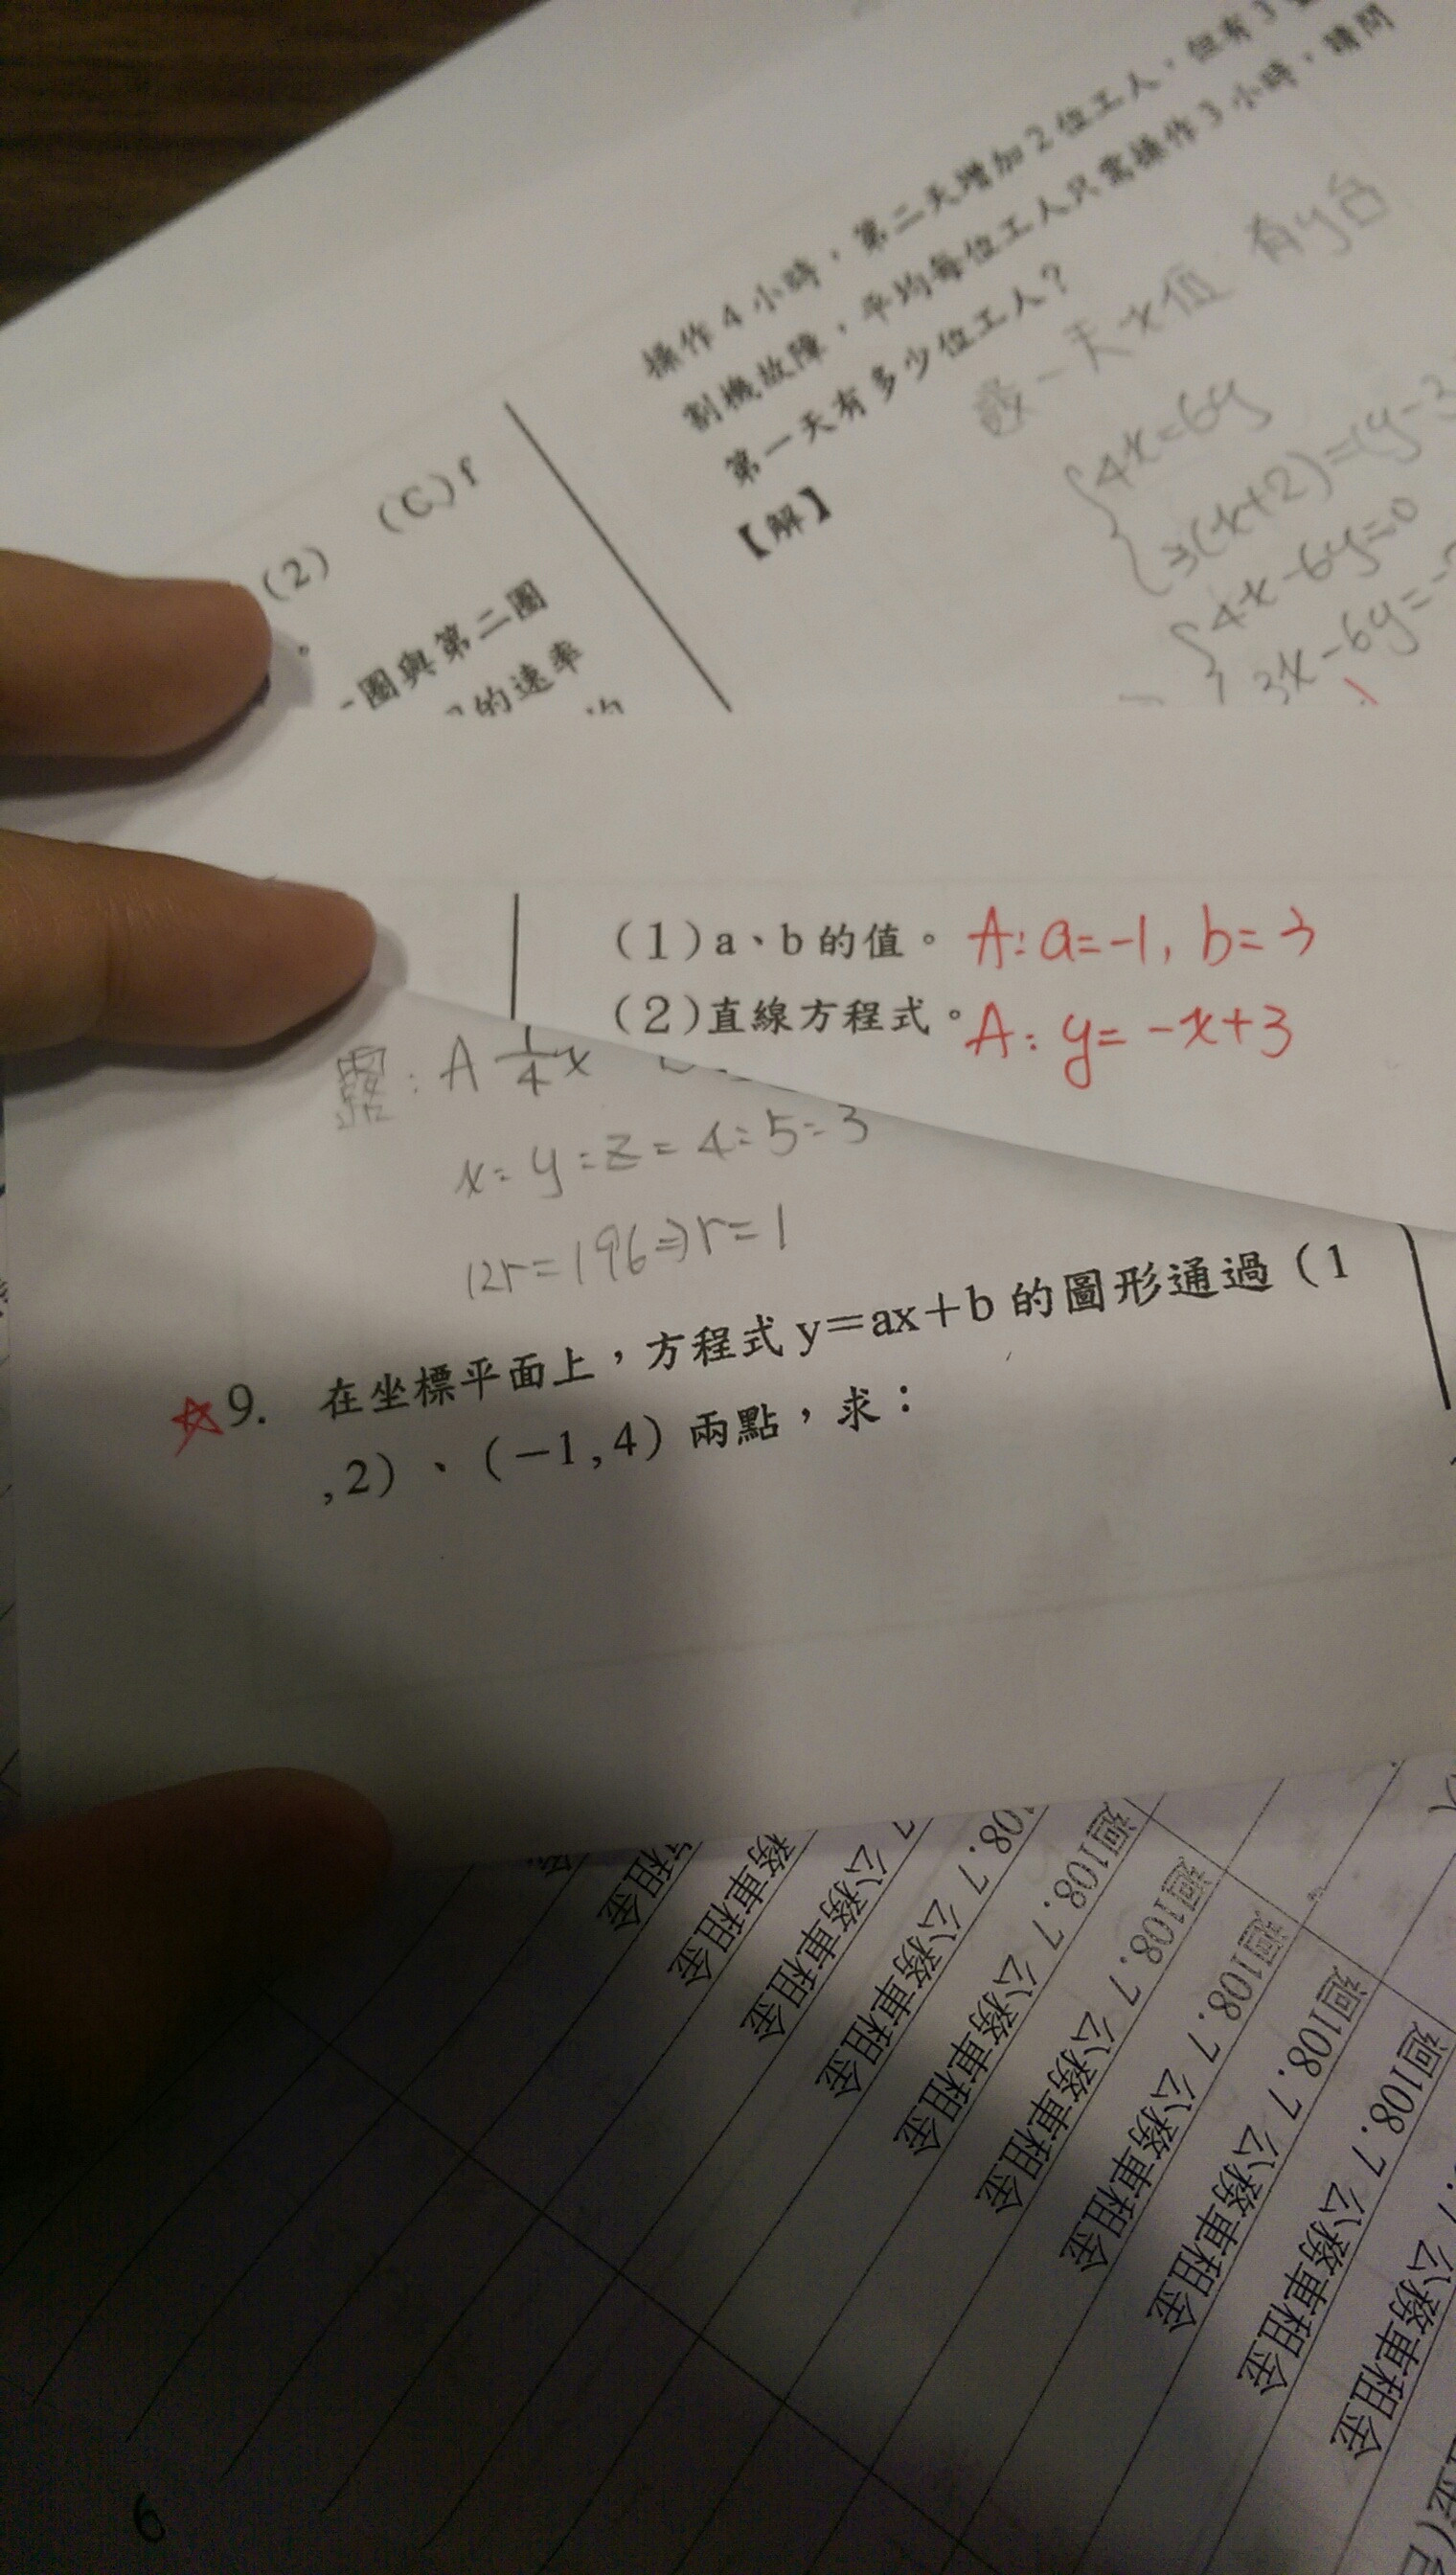 操作4小時，第二天增加2位工人，但有3
割機故障，平均每位工人只需操作3小時，請問
第一天有多少位工人？
【解】
設一天x位 有y台
4x=6y
3(x+2)=(y-3
4x-6y=0
3x-6y=-
(2) (C)f
圈與第二圈
的速率
(1)a、b的值。 A: a=-1, b=3
(2)直線方程式。 A: y=-x+3
露: A 1/4 x
x:y:z=4:5:3
12r=196⇒r=1
☆9. 在坐標平面上，方程式y=ax+b的圖形通過(1
,2)、(-1,4)兩點，求：
租金
務車租金
7 公務車租金
108.7 公務車租金
迴108.7 公務車租金
迴108.7 公務車租金
迴108.7 公務車租金
迴108.7 公務車租金
迴108.7 公務車租金
.7 公務車租金
6